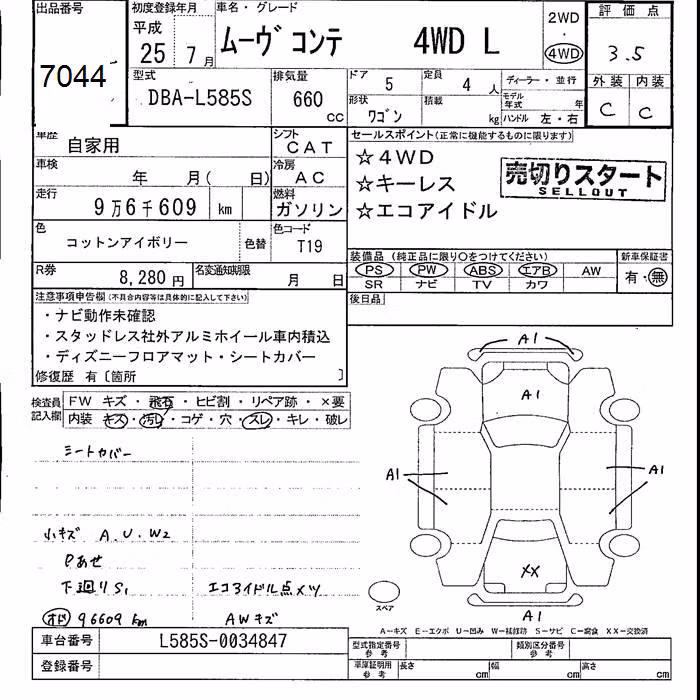 出品番号
7044
初度登録年月
平成
25 7月
車名・グレード
ムーヴ コンテ 4WD L
2WD
・
4WD
評価点
3.5
外装 内装
C C
型式
DBA-L585S
排気量
660
cc
ドア
5
定員
4 人
ディーラー・並行
形状
ワゴン
積載
kg
モデル年式 年
ハンドル 左・右
車歴
自家用
シフト
CAT
車検
年 月( 日)
冷房
AC
走行
9万6千609 km
燃料
ガソリン
色
コットンアイボリー
色替
色コード
T19
R券
8,280円
名変通知期限
月 日
セールスポイント(正常に機能するものに限ります)
☆4WD
☆キーレス
☆エコアイドル
売切りスタート
SELLOUT
装備品 (純正品に限り○をつけてください)
PS PW ABS エアB AW
SR ナビ TV カワ
新車保証書
有・無
後日品
注意事項申告欄(不具合内容等は具体的に記入して下さい)
・ナビ動作未確認
・スタッドレス社外アルミホイール車内積込
・ディズニーフロアマット・シートカバー
修復歴 有〔箇所 〕
検査員
記入欄
FW キズ・飛石・ヒビ割・リペア跡・×要
内装 キズ・汚レ・コゲ・穴・スレ・キレ・破レ
シートカバー
小キズ A.U.W2
Pあせ
下廻りS1 エコアイドル点メツ
オド 96609 km AWキズ
A1
A1
A1
A1
XX
A1
スペア
A-キズ E-エクボ U-凹み W-補修跡 S-サビ C-腐食 XX-交換済
車台番号
L585S-0034847
登録番号
型式指定番号
参考
類別区分番号
参考
車庫証明用
参考
長さ cm
幅 cm
高さ cm